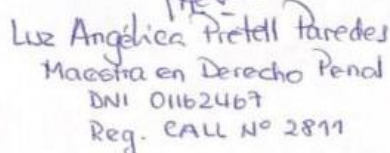 Luz Angélica Pretell Paredes
Maestra en Derecho Penal
DNI 01162467
Reg. CALL Nº 2811